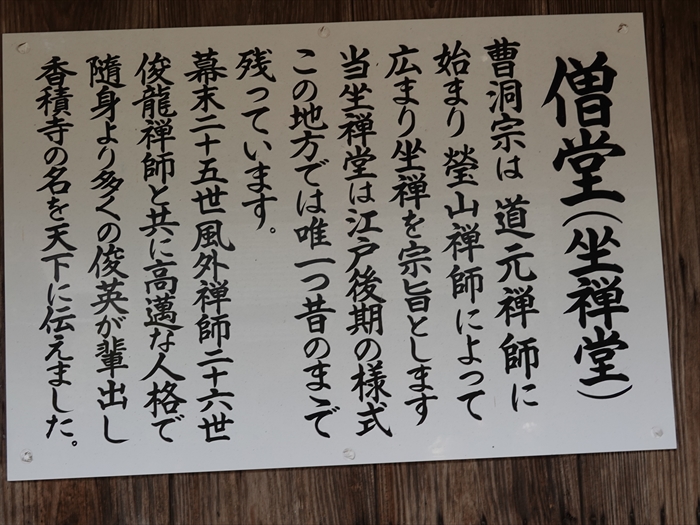 僧堂(坐禅堂)
曹洞宗は 道元禅師に
始まり 瑩山禅師によって
広まり坐禅を宗旨とします
当坐禅堂は江戸後期の様式
この地方では唯一つ昔のまゝで
残っています。
幕末二十五世風外禅師二十六世
俊龍禅師と共に高邁な人格で
隨身より多くの俊英が輩出し
香積寺の名を天下に伝えました。